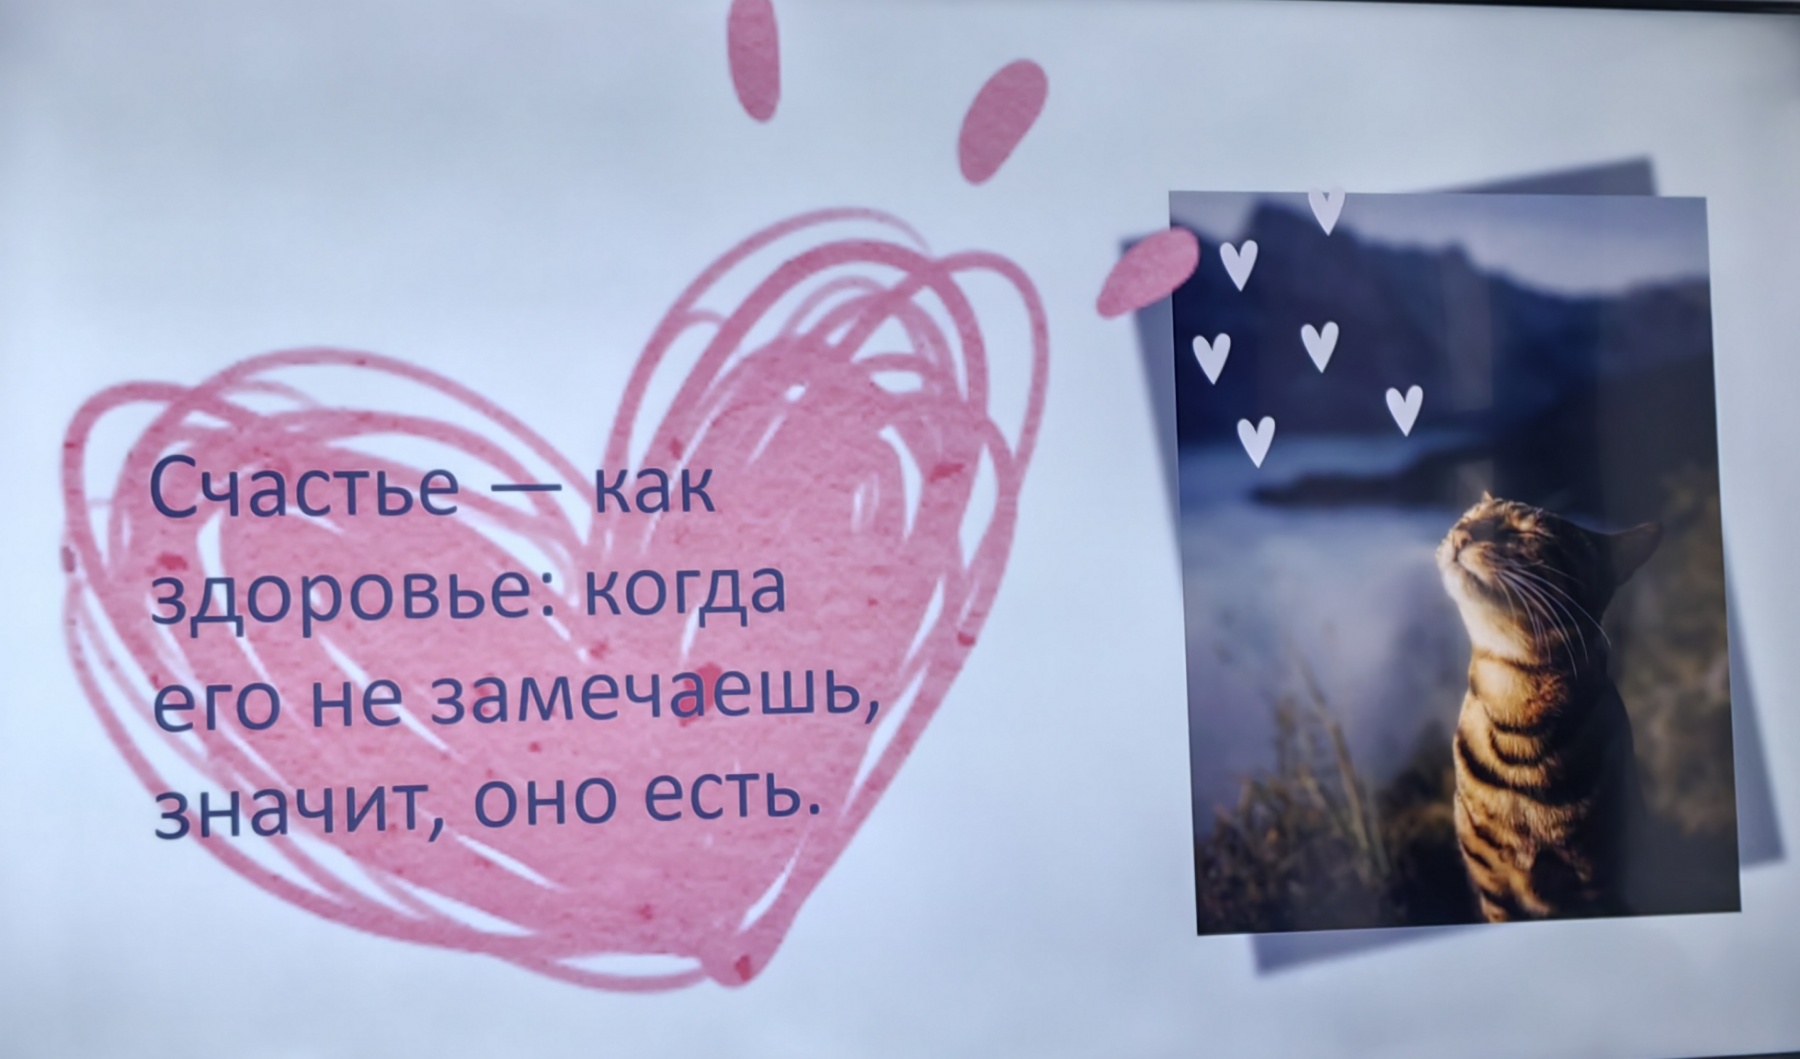 Счастье — как
здоровье: когда
его не замечаешь,
значит, оно есть.